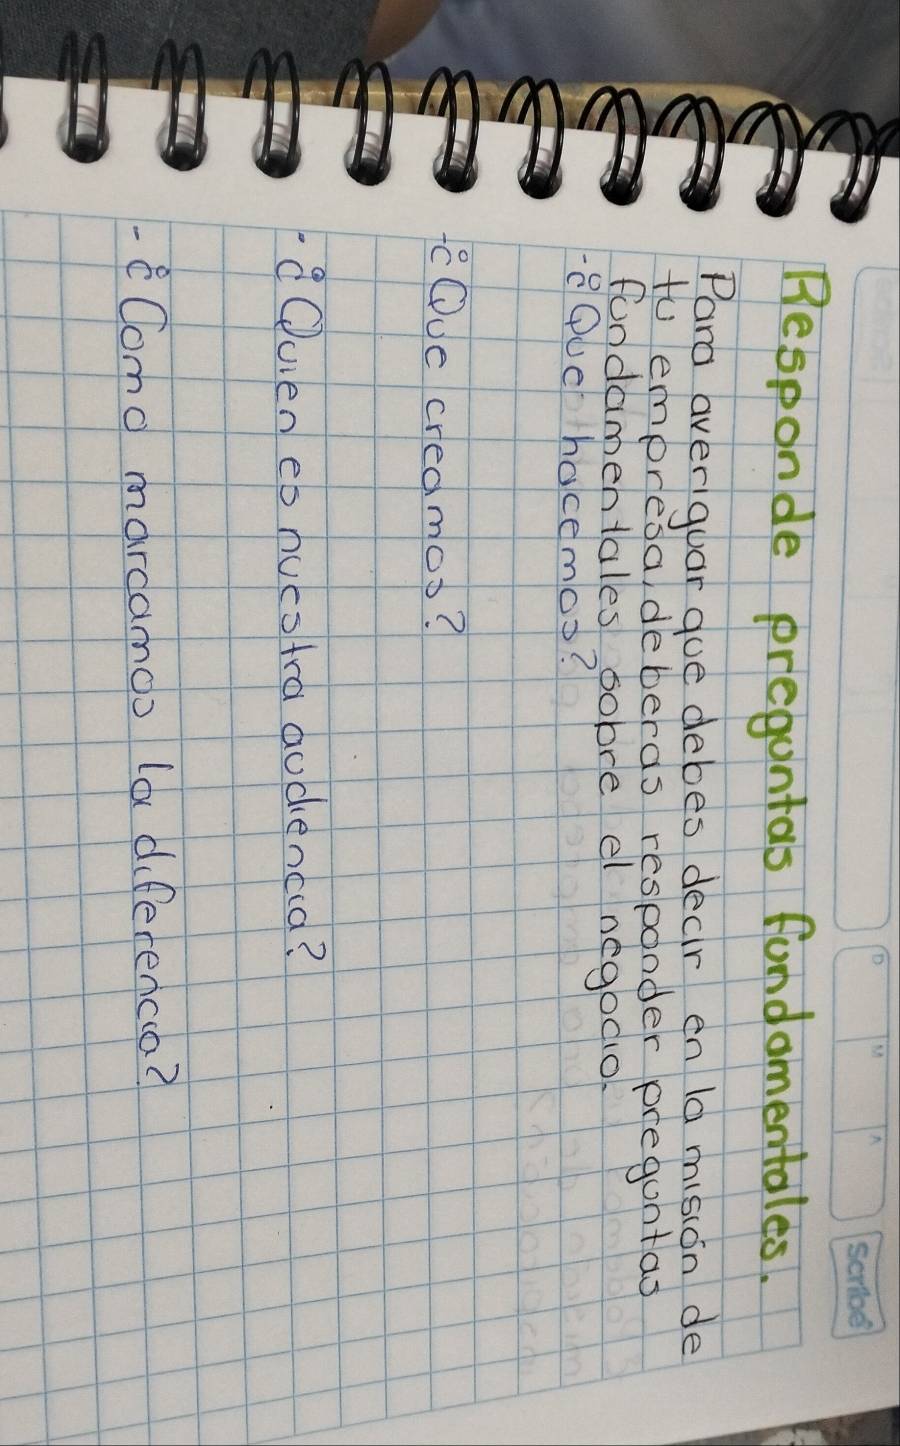 D M A
Scribe
Responde preguntas fundamentales.
Para averiguar que debes decir en la misión de
tu empresa, deberas responder preguntas
fundamentales sobre el negocio.
-¿Que hacemos?
-¿Que creamos?
-¿Quien es nuestra audiencia?
-¿Como marcamos la diferencia?